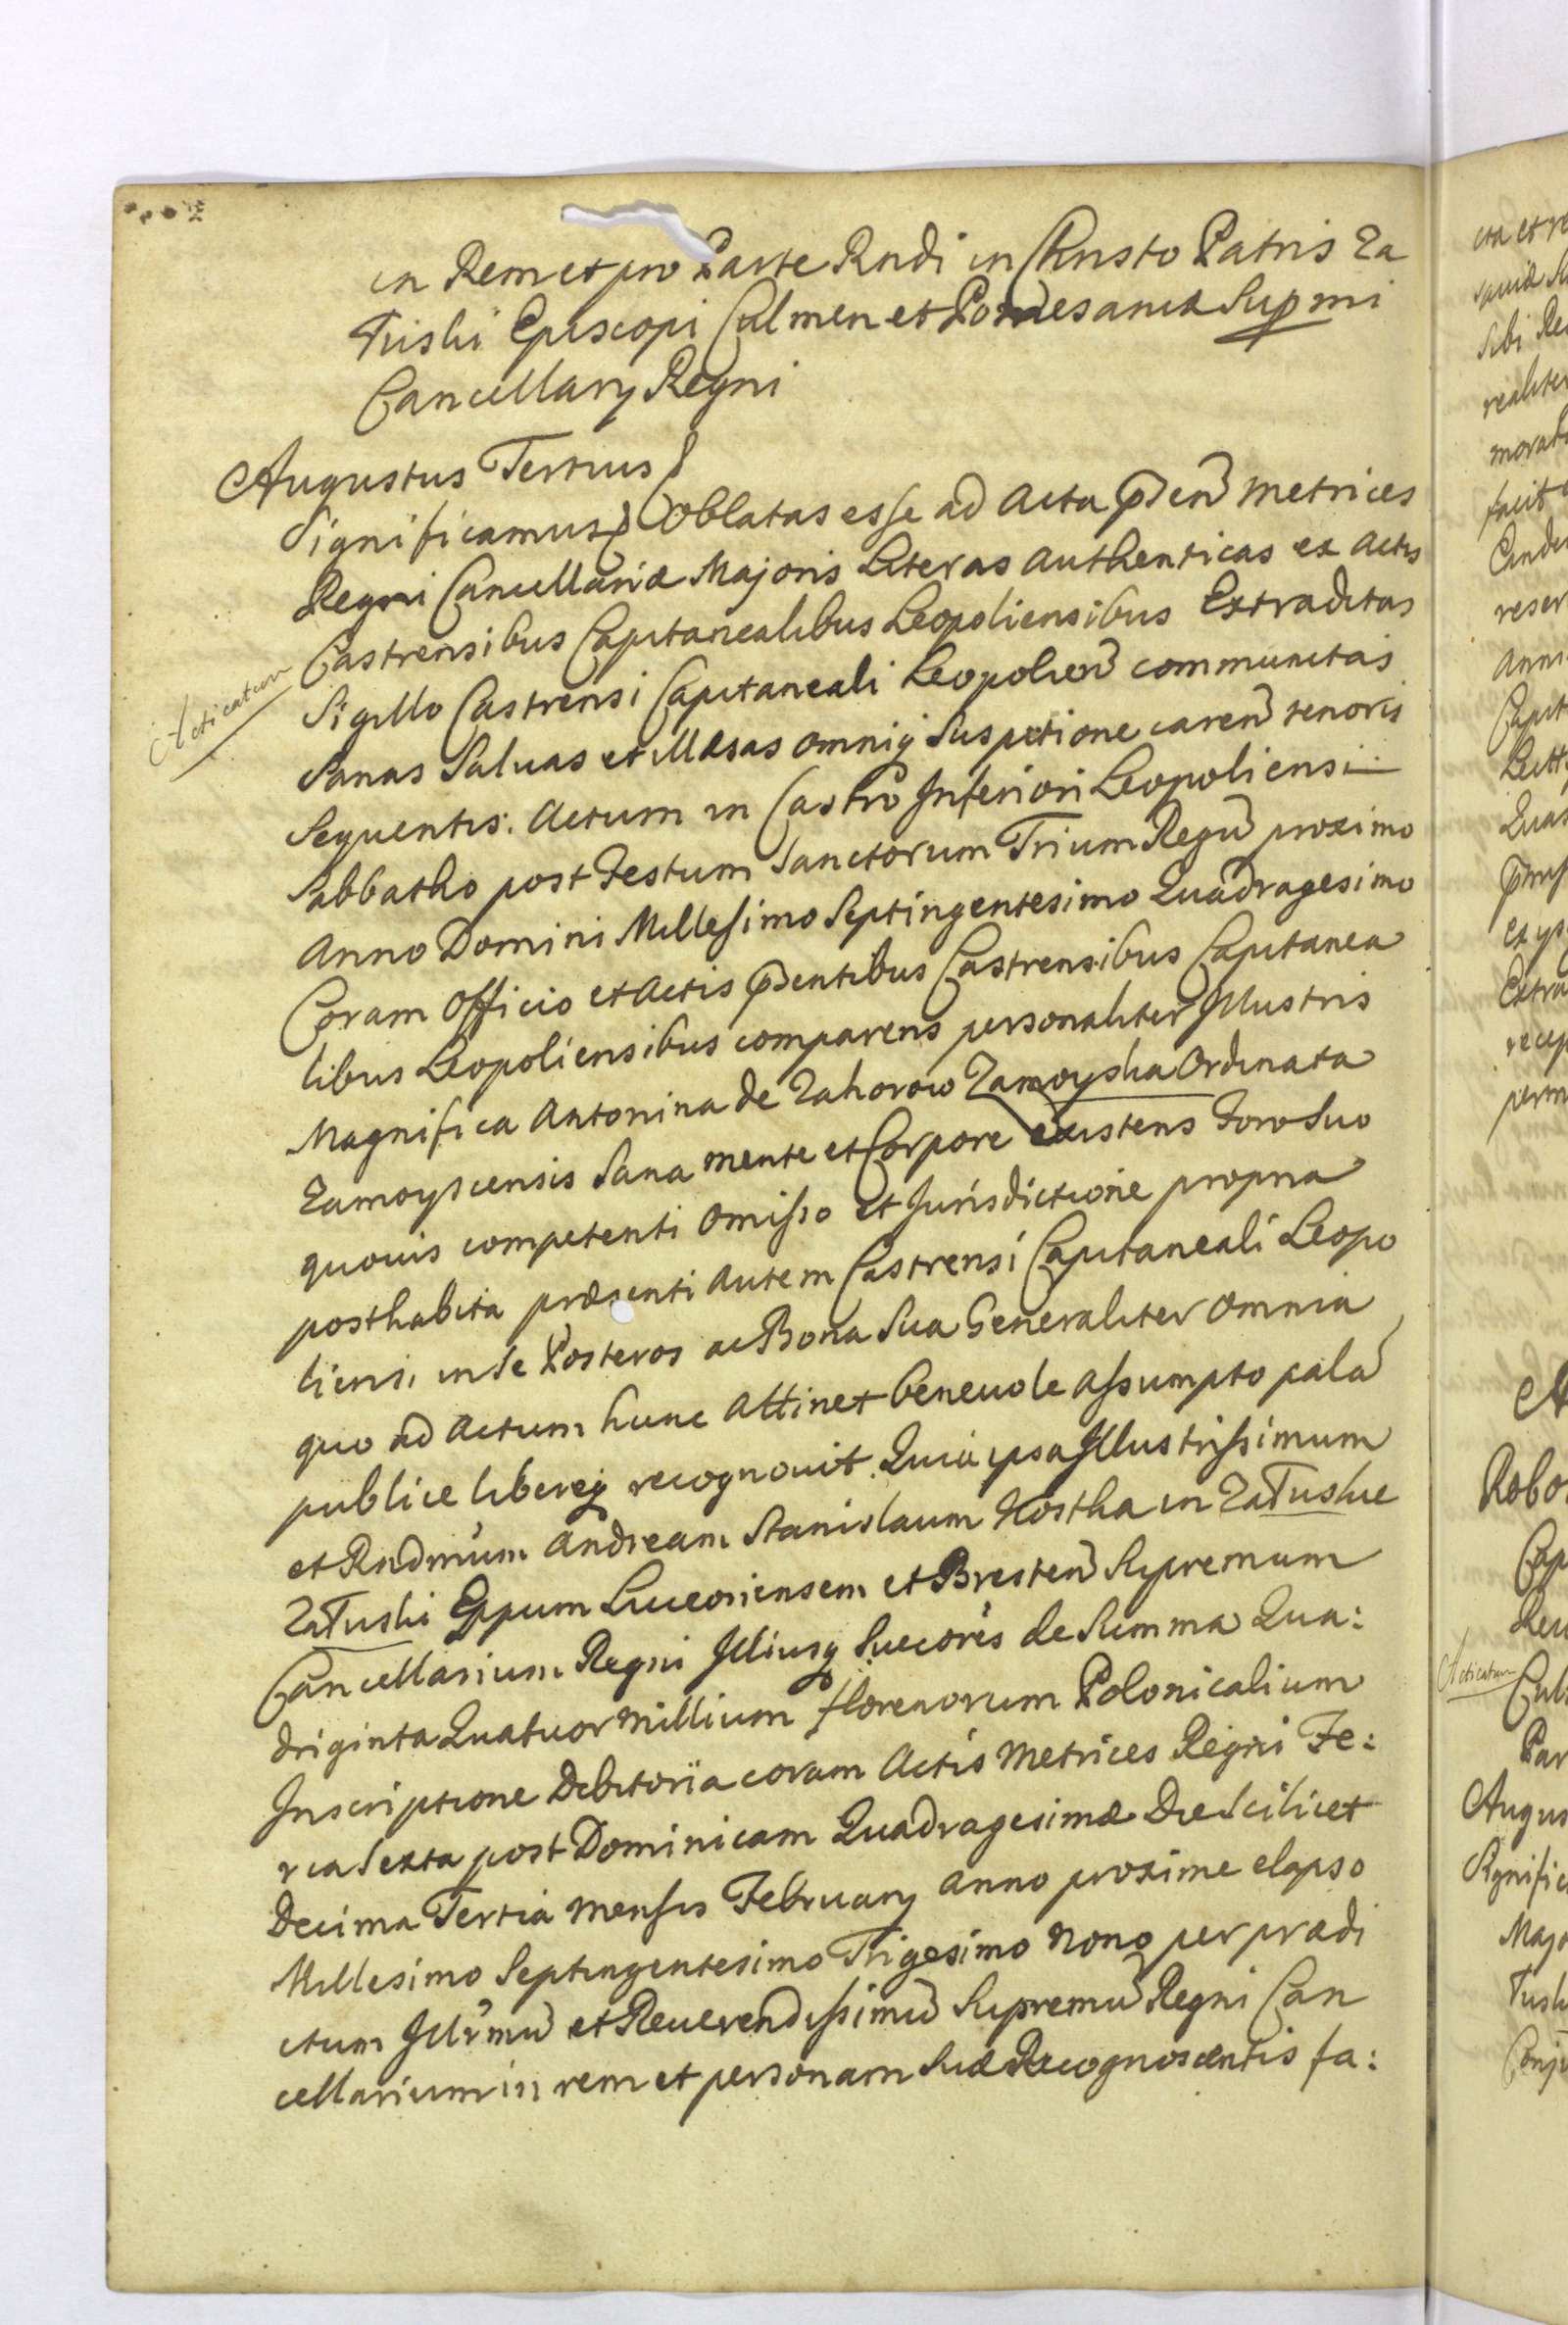 in Rem et pro Parte Rndi in Christo Patris Za
Tuski Episcopi Culmen et Pomesaniæ Supmi
Cancellarij Regni
Augustus Tertius
Significamus Oblatas esse ad Acta pñden Metrices
Regni Cancellariæ Majoris Literas Authenticas ex Actis
Castrensibus Capitanealibus Leopoliensibus Extraditas
Acticatum
Sigillo Castrensi Capitaneali Leopolien communitas
Sanas Saluas et illæsas omniq Suspicione caren tenoris
Sequentis. Actum in Castro Inferiori Leopoliensi
Sabbatho post Festum Sanctorum Trium Regū proximo
Anno Domini Millesimo Septingentesimo Quadragesimo
Coram Officio et Actis pñdentibus Castrensibus Capitanea
libus Leopoliensibus comparens personaliter Illustris
Magnifica Antonina de Zahorow Zamoyska Ordinata
Zamoyscensis Sana mente et Corpore existens Foro Suo
quouis competenti omisso et Jurisdictione propria
posthabita præsenti autem Castrensi Capitaneali Leopo
liensi in Se Posteros ac Bona Sua Generaliter omnia
quo ad Actum hunc attinet beneuole assumpto palā
publice libereq recognouit. Quia ipsa Illustrissimum
et Rndmum Andream Stanislaum Kostka in ZaTuskie
ZaTuski Eppum Luceoriensem et Bresten Supremum
Cancellarium Regni Illiusq Succores de Summa Qua:
driginta Quatuor millium florenorum Polonicalium
Inscriptione Debitoria coram Actis Metrices Regni Fe:
ria Sexta post Dominicam Quadragesimæ Die Scilicet
Decima Tertia Mensis February Anno proxime elapso
Millesimo Septingentesimo Trigesimo Nono per prædi
ctum Illrmū et Reuerendissimū Supremū Regni Can
cellarium in rem et personam Suæ Recognoscentis fa: